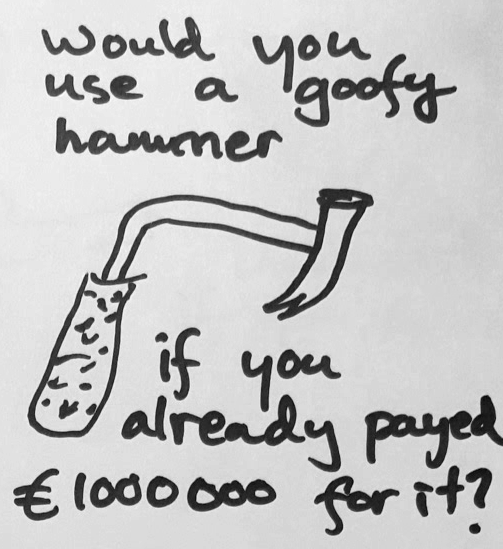 would you
use a goofy
hammer
if you
already payed
€1000000 for it?